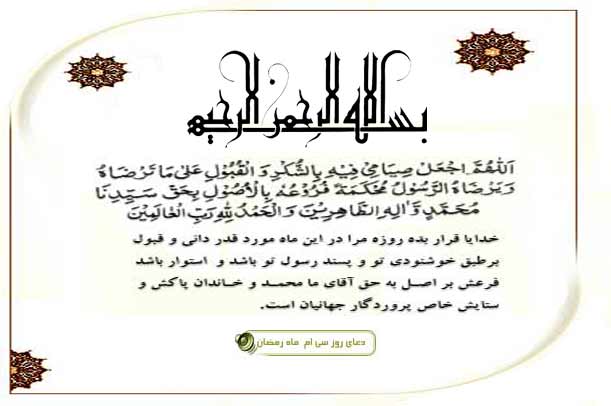 بسم الله الرحمن الرحیم
اَللّهُمَّ اجْعَلْ صِیامی فیهِ بِالشُّکْرِ وَ الْقَبُولِ عَلی ما تَرْضاهُ
وَ یَرْضاهُ الرَّسُولُ مُحْکَمَةً فُرُوعُهُ بِالْاُصُولِ بِحَقِّ سَیِّدِنا
مُحَمَّدٍ وَ الِهِ الطّاهِرینَ وَ الْحَمْدُ لِلّهِ رَبِّ الْعالَمینَ
خدایا قرار بده روزه مرا در این ماه مورد قدر دانی و قبول
برطبق خوشنودی تو و پسند رسول تو باشد و استوار باشد
فرعش بر اصل به حق آقای ما محمد و خاندان پاکش و
ستایش خاص پروردگار جهانیان است.
دعای روز سی ام ماه رمضان